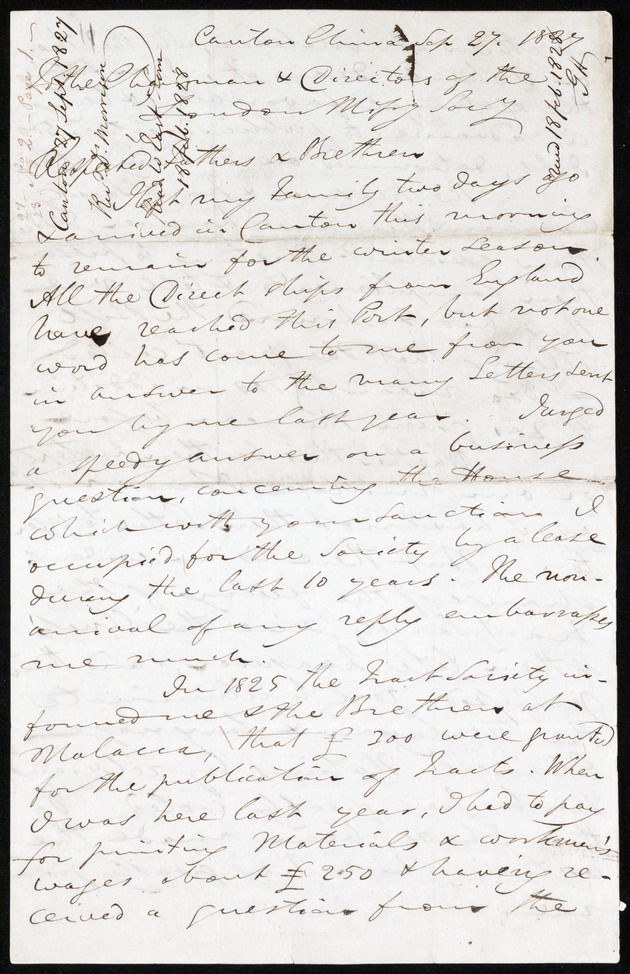 Canton China Sep 27. 1827
To the Chairman & Directors of the
London Missy Socy
Respected Fathers & Brethren
I left my family two days ago
& arrived in Canton this morning
to remain for the winter season.
All the Direct ships from England
have reached this Port, but not one
word has come to me from you
in answer to the many Letters sent
you by me last year. I urged
a speedy answer on a business
question, concerning the House
which with your sanction I
occupied for the Society by a lease
during the last 10 years. The non-
arrival of any reply embarrasses
me much.
In 1825 the Tract Society in-
formed me & the Brethren at
Malacca, that £ 300 were granted
for the publication of Tracts. When
I was here last year, I had to pay
for printing Materials & workmen's
wages about £ 250 & having re-
ceived a question from the
Canton 27 Sept. 1827
Revd Dr Morrison
Read to East. Com
18 Feb. 1828